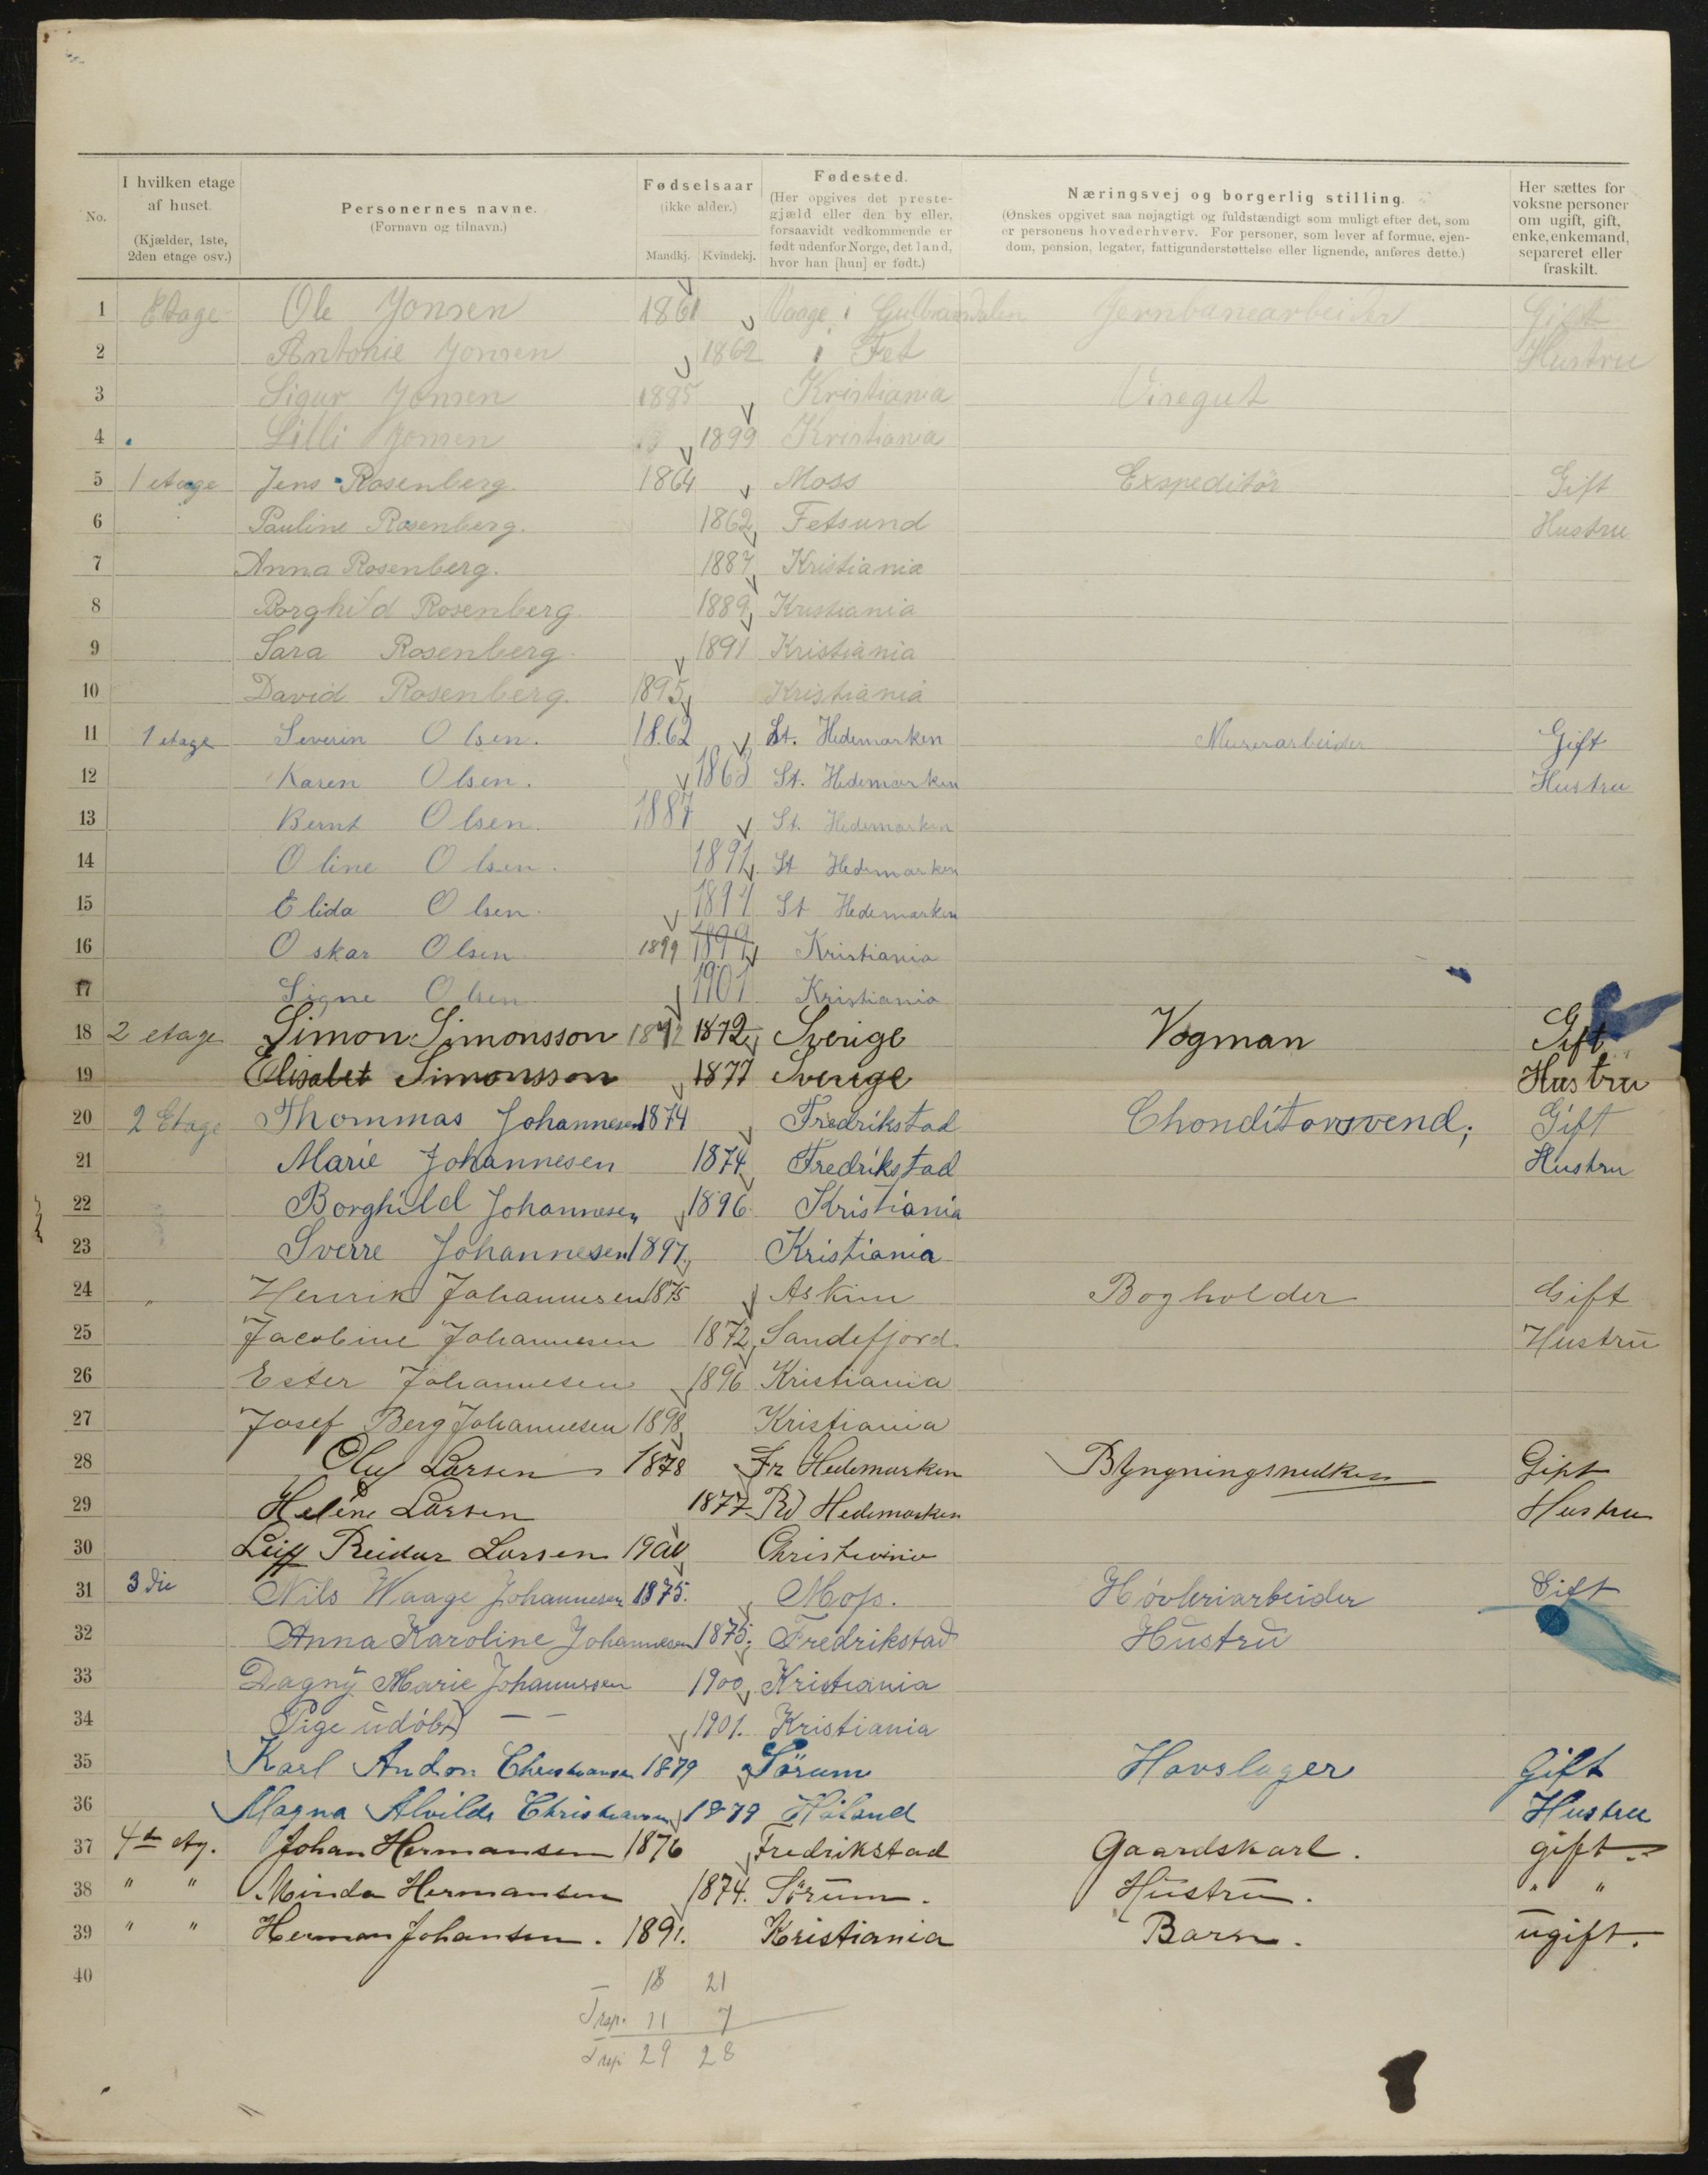 No.
I hvilken etage af huset.
(Kjælder, 1ste, 2den etage osv.)
Personernes navne.
(Fornavn og tilnavn.)
Fødselsaar
(ikke alder.)
Mandkj. Kvindekj.
Fødested.
(Her opgives det prestegjæld eller den by eller, forsaavidt vedkommende er født udenfor Norge, det land, hvor han [hun] er født.)
Næringsvej og borgerlig stilling.
(Ønskes opgivet saa nøjagtigt og fuldstændigt som muligt efter det, som er personens hovederhverv. For personer, som lever af formue, ejendom, pension, legater, fattigunderstøttelse eller lignende, anføres dette.)
Her sættes for voksne personer om ugift, gift, enke, enkemand, separeret eller fraskilt.
1 Etage Ole Jonsen 1861 Vaage i Gulbrandalen Jernbanearbeider Gift
2 Antonie Jonsen 1862 i Fet Hustru
3 Sigur Jonsen 1885 Kristiania Visegut
4 Lilli Jonsen 1899 Kristiania
5 1 etage Jens Rosenberg 1864 Moss Exspeditör Gift
6 Pauline Rosenberg. 1862 Fetsund Hustru
7 Anna Rosenberg. 1887 Kristiania
8 Borghild Rosenberg. 1889 Kristiania
9 Sara Rosenberg. 1891 Kristiania
10 David Rosenberg. 1895 Kristiania
11 1 etage Severin Olsen. 1862 St. Hedemarken Murerarbeider Gift
12 Karen Olsen. 1863 St. Hedemarken Hustru
13 Bernt Olsen. 1887 St. Hedemarken
14 Oline Olsen. 1891 St Hedemarken
15 Elida Olsen. 1897 St Hedemarken
16 Oskar Olsen 1899 1899 Kristiania
17 Signe Olsen 1901 Kristiania
18 2 etage Simon Simonsson 1872 1872 Sverige Vogman Gift
19 Elisabet Simonsson 1877 Sverige Hustru
20 2 Etage Thommas Johannesen 1874 Fredrikstad Chonditorsvend; Gift
21 Marie Johannesen 1874 Fredrikstad Hustru
22 Borghild Johannesen 1896 Kristiania
23 Sverre Johannesen 1897 Kristiania
24 " Henrik Johannesen 1875 Askim Bogholder Gift
25 Jacobine Johannesen 1872 Sandefjord. Hustru
26 Ester Johannesen 1896 Kristiania
27 Josef Berg Johannesen 1898 Kristiania
28 Oluf Larsen 1878 Hedemarken Bygningsnedker Gift
29 Heléne Larsen 1877 Hedemarken Hustru
30 Leiff Reidar Larsen Christiania
31 3 die Nils Waage Johannesen 1875. Moss. Høvleriarbeider Gift
32 Anna Karoline Johannesen 1875; Fredrikstad Hustru
33 Dagny Marie Johannesen 1900 Kristiania
34 Pige udøbt — — 1901. Kristiania
35 Karl Andon Christiansen 1879 Sörum Hovslager Gift
36 Magna Alvilde Christiansen 1879 Høland Hustru
37 4de etg. Johan Hermansen 1876 Fredrikstad Gaardskarl. gift.
38 " " Minda Hermansen 1874. Sörum. Hustru. " "
39 " " Herman Johansen. 1891. Kristiania Barn. ugift.
40
— 18 21
Trsp. 11 7
Trsp 29 28